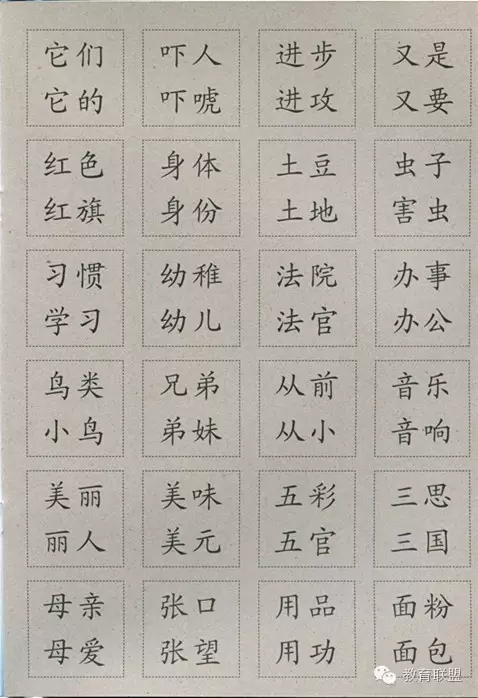 它们 吓人 进步 又是
它的 吓唬 进攻 又要
红色 身体 土豆 虫子
红旗 身份 土地 害虫
习惯 幼稚 法院 办事
学习 幼儿 法官 办公
鸟类 兄弟 从前 音乐
小鸟 弟妹 从小 音响
美丽 美味 五彩 三思
丽人 美元 五官 三国
母亲 张口 用品 面粉
母爱 张望 用功 面包
教育联盟